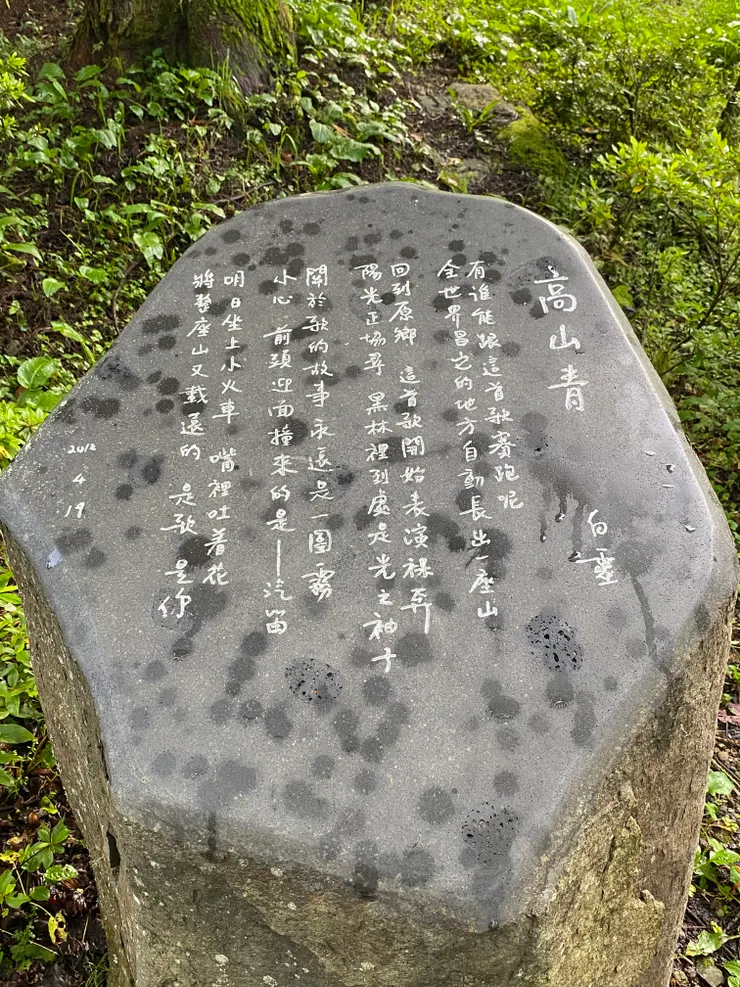 高山青
白靈
有誰能跟這首歌賽跑呢
全世界唱它的地方自動長出一座山
回到原鄉 這首歌開始表演裸奔
陽光正 尋 黑林裡到處是光之袖子
關於歌的故事永遠是一團霧
小心 前頭迎面撞來的是—汽笛
明日坐上小火車 嘴裡吐着花
將整座山又載遠的 是歌 是你
2012
4
19